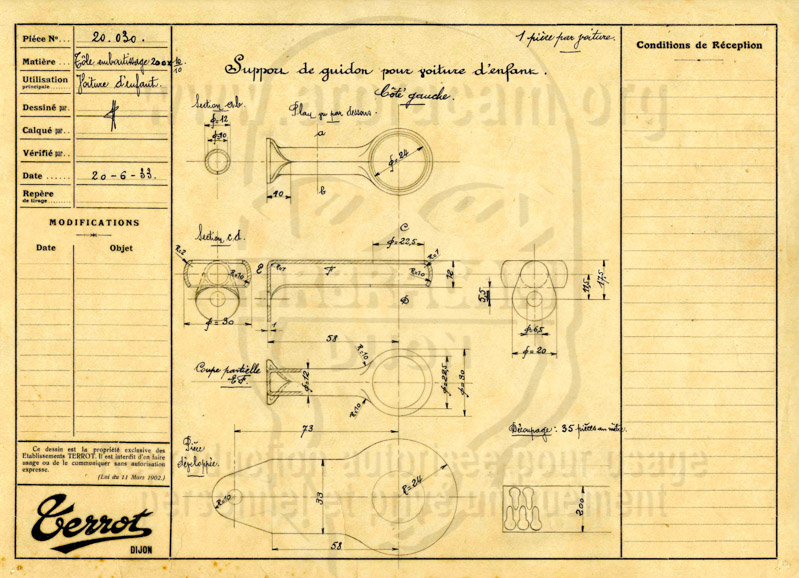 Pièce Nº... 20.030.
Matière... Tôle emboutissage 200x10/10
Utilisation
principale....... Voiture d'enfant.
Dessiné par.
Calqué par...
Vérifié par...
Date ...... 20-6-33.
Repère
de tirage........
MODIFICATIONS
Date Objet
Ce dessin est la propriété exclusive des
Etablissements TERROT. Il est interdit d'en faire
usage ou de le communiquer sans autorisation
expresse.
(Loi du 11 Mars 1902.)
Terrot
DIJON
1 pièce par voiture.
Support de guidon pour voiture d'enfant.
Côté gauche.
Conditions de Réception
Section a.b.
ϕ=12
ϕ=10
Plan vu par dessous.
a
b
ϕ=24
10
Section c.d.
R=2
R=10
ϕ=30
C
ϕ=22,5
E
R=7
F
R=7
R=10
D
12
1
58
5,5
11,5
17,5
ϕ=6,5
ϕ=20
Coupe partielle
E F.
ϕ=12
R=10
R=10
ϕ=22,5
ϕ=30
73
Pièce
développée.
R=10
33
R=24
58
Découpage: 35 pièces au mètre.
200
www.
.org
DIJON
reproduction autorisée pour usage
personnel et privé uniquement